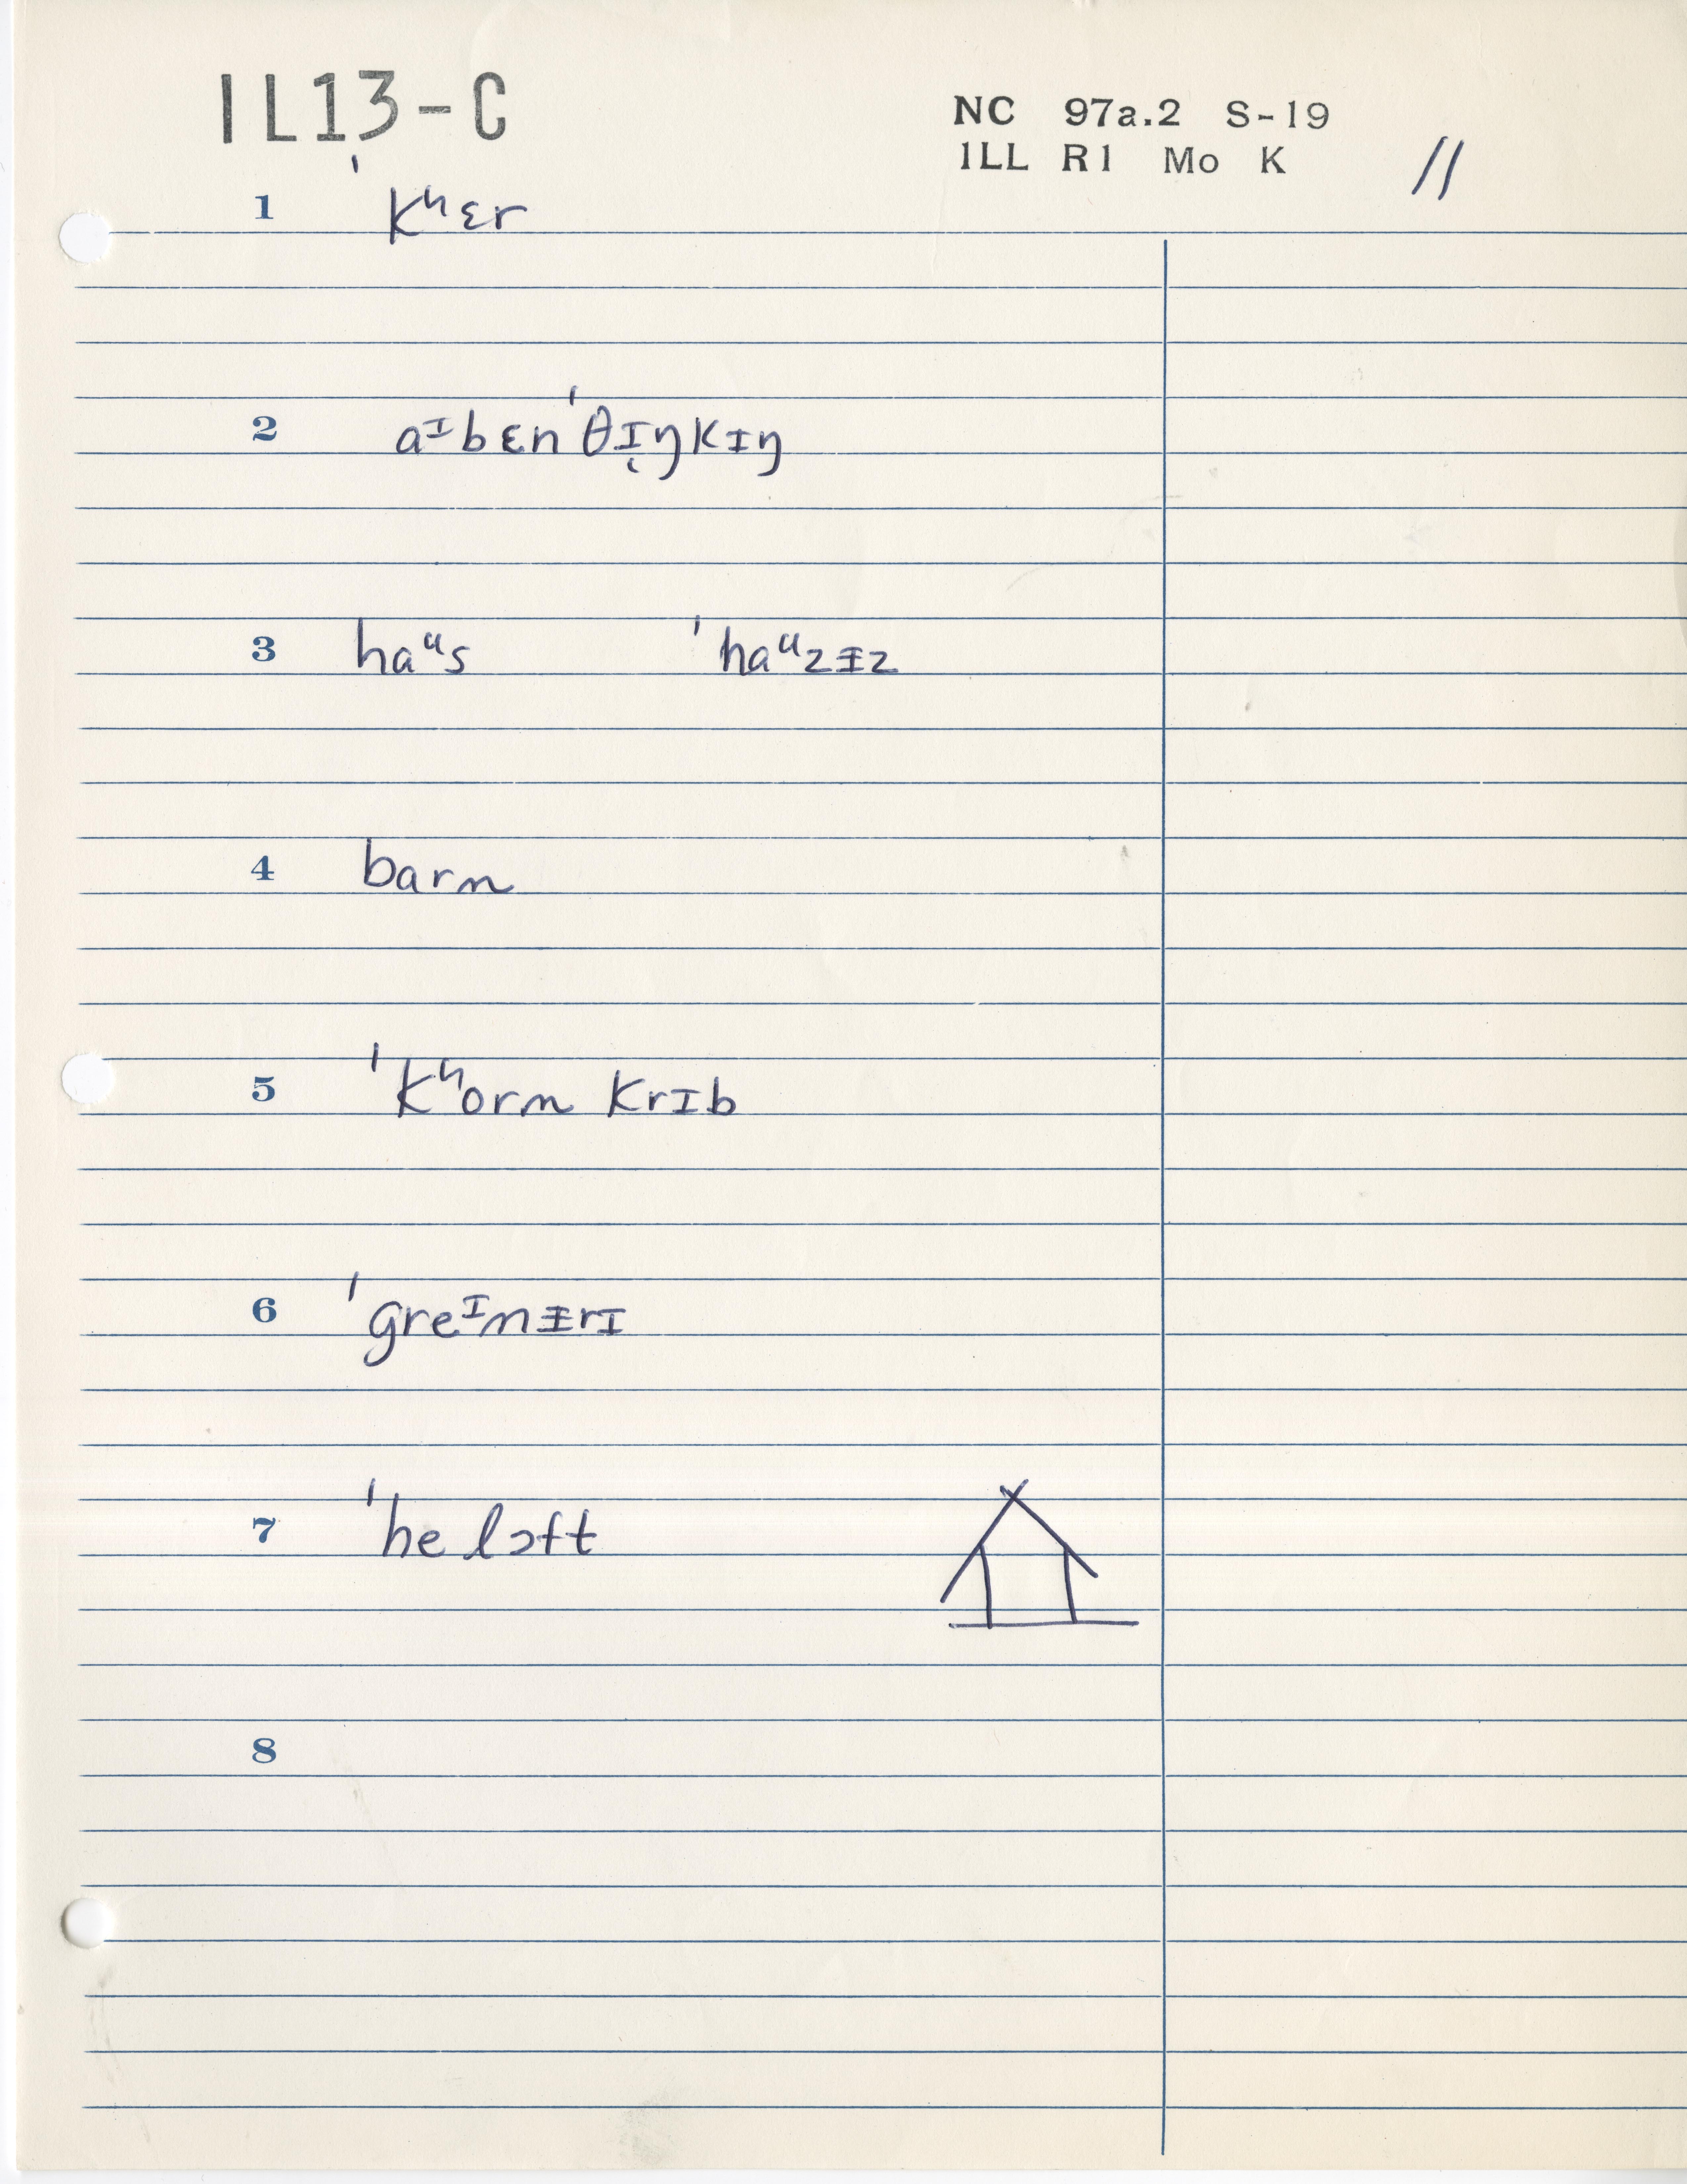 IL13-C
NC 97a.2 S-19
ILL R1 Mo K
11
1 ˈkʰɛr
2 aᶦbɛnˈθɪ̨ŋkɪŋ
3 haᵘs ˈhaᵘzɪ̵z
4 barn
5 ˈkʰorn krɪb
6 ˈgreᶦnɪ̵rɪ
7 ˈhe lɔft
8